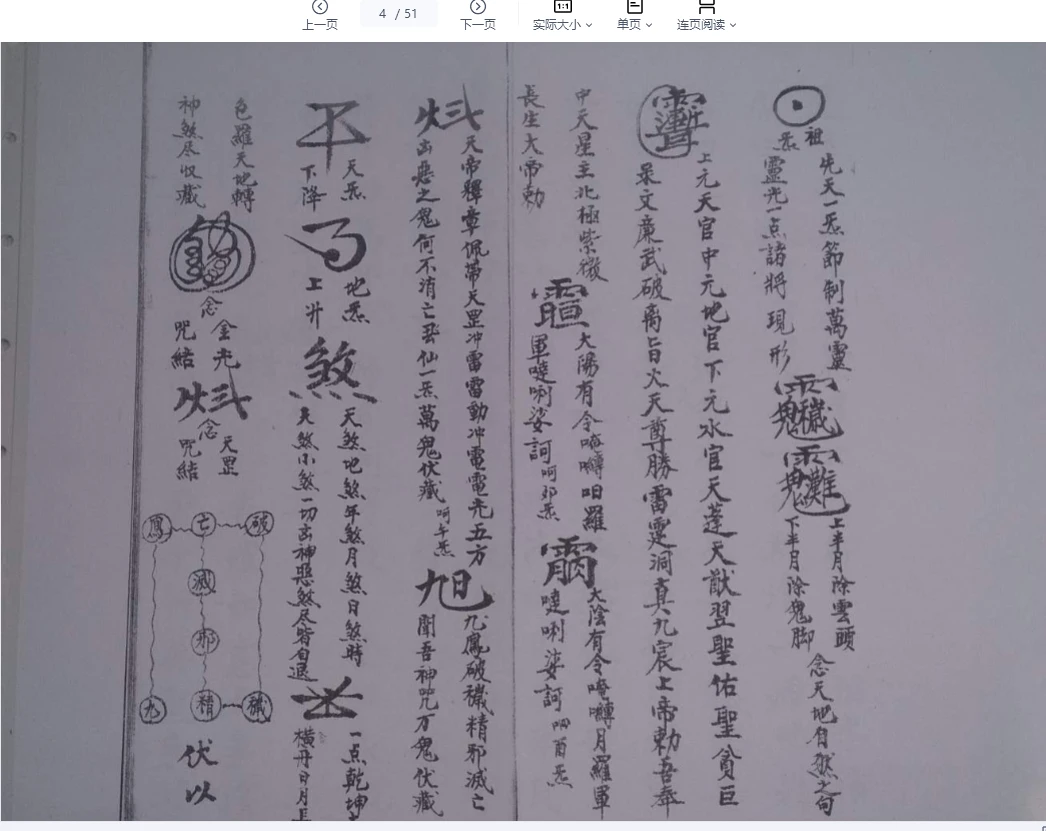 上一页
4 / 51
下一页
1:1
实际大小
单页
连页阅读
祖炁
先天一炁節制萬靈
靈光一点諸將現形
上半月除雲頭
下半月除鬼脚
念天地自然之句
上元天官中元地官下元水官天蓬天猷翌聖佑聖貪巨
录文廉武破离旨火天尊勝雷霆洞真九宸上帝勅吾奉
中天星主北極紫微
長生大帝勅
大陽有令唵嚩呬羅
軍噠唎娑訶
呵卯炁
大陰有令唵嚩月羅軍
噠唎娑訶
呵酉炁
天帝釋章佩帶天罡冲雷雷動冲電電光五方
出惡之鬼何不消亡飛仙一炁萬鬼伏藏
呵午炁
旭
九鳳破穢精邪滅亡
聞吾神咒万鬼伏藏
天炁
下降
地炁
上升
煞
天煞地煞年煞月煞日煞時
大煞小煞一切凶神惡煞尽皆自退
一点乾坤
横丹日月
包羅天地轉
神煞尽収藏
念金光
咒結
念天罡
咒結
破
亡
鳳
滅
邪
穢
精
九
伏以